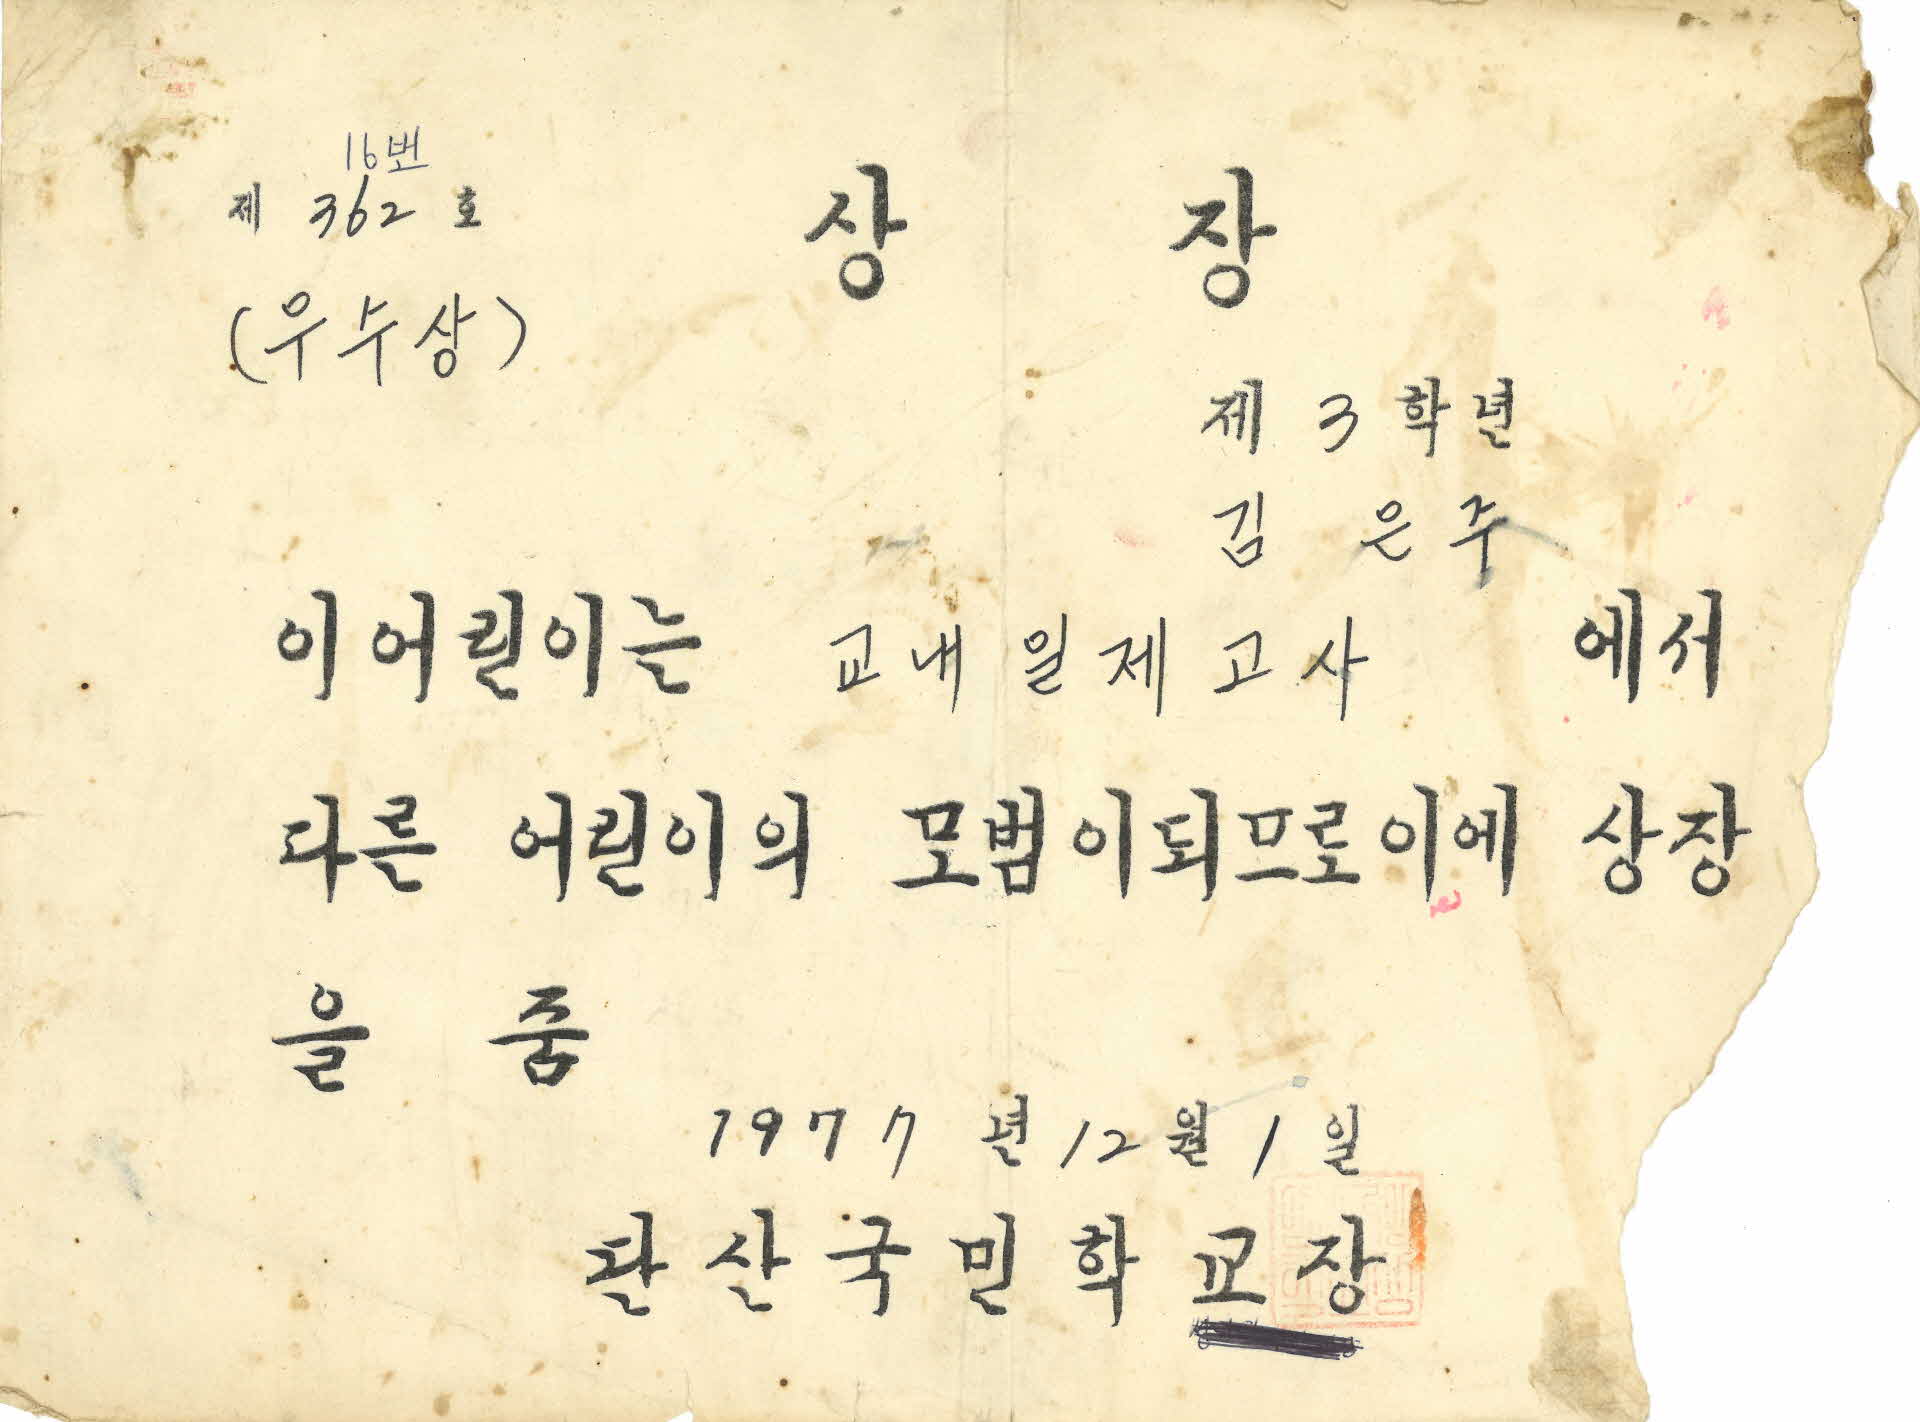 16번
제 362 호
상 장
(우수상)
제 3 학년
김 은주
이어린이는 교내일제고사 에서
다른 어린이의 모범이되므로이에 상장
을 줌
1977 년 12 월 1 일
판산국민학교장